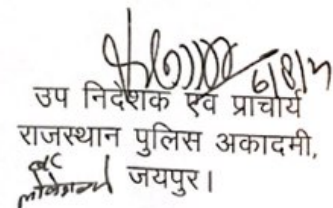 6/8/21
उप निदेशक एवं प्राचार्य
राजस्थान पुलिस अकादमी,
जयपुर।